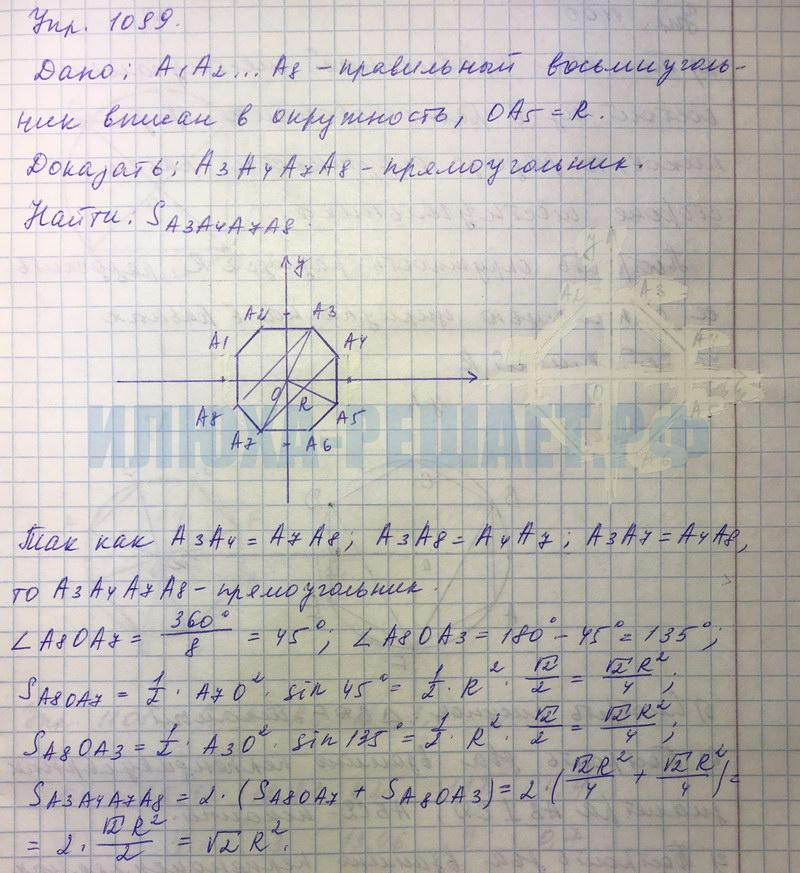 Упр. 1099.
Дано: A1A2...A8 - правильный восьмиуголь-
ник вписан в окружность, OA5 = R.
Доказать: A3A4A7A8 - прямоугольник.
Найти: S A3A4A7A8.
y
A2 A3
A1 A4
O
R
A8 A5
A7 A6
ИЛЮХА-РЕШАЕТ.РФ
Так как A3A4 = A7A8; A3A8 = A4A7; A3A7 = A4A8,
то A3A4A7A8 - прямоугольник.
∠A8OA7 = 360°/8 = 45°; ∠A8OA3 = 180° - 45° = 135°;
S A8OA7 = 1/2 · A7O² · sin 45° = 1/2 · R² · √2/2 = √2R²/4;
S A8OA3 = 1/2 · A3O² · sin 135° = 1/2 · R² · √2/2 = √2R²/4;
S A3A4A7A8 = 2 · (S A8OA7 + S A8OA3) = 2 · (√2R²/4 + √2R²/4) =
= 2 · √2R²/2 = √2R².